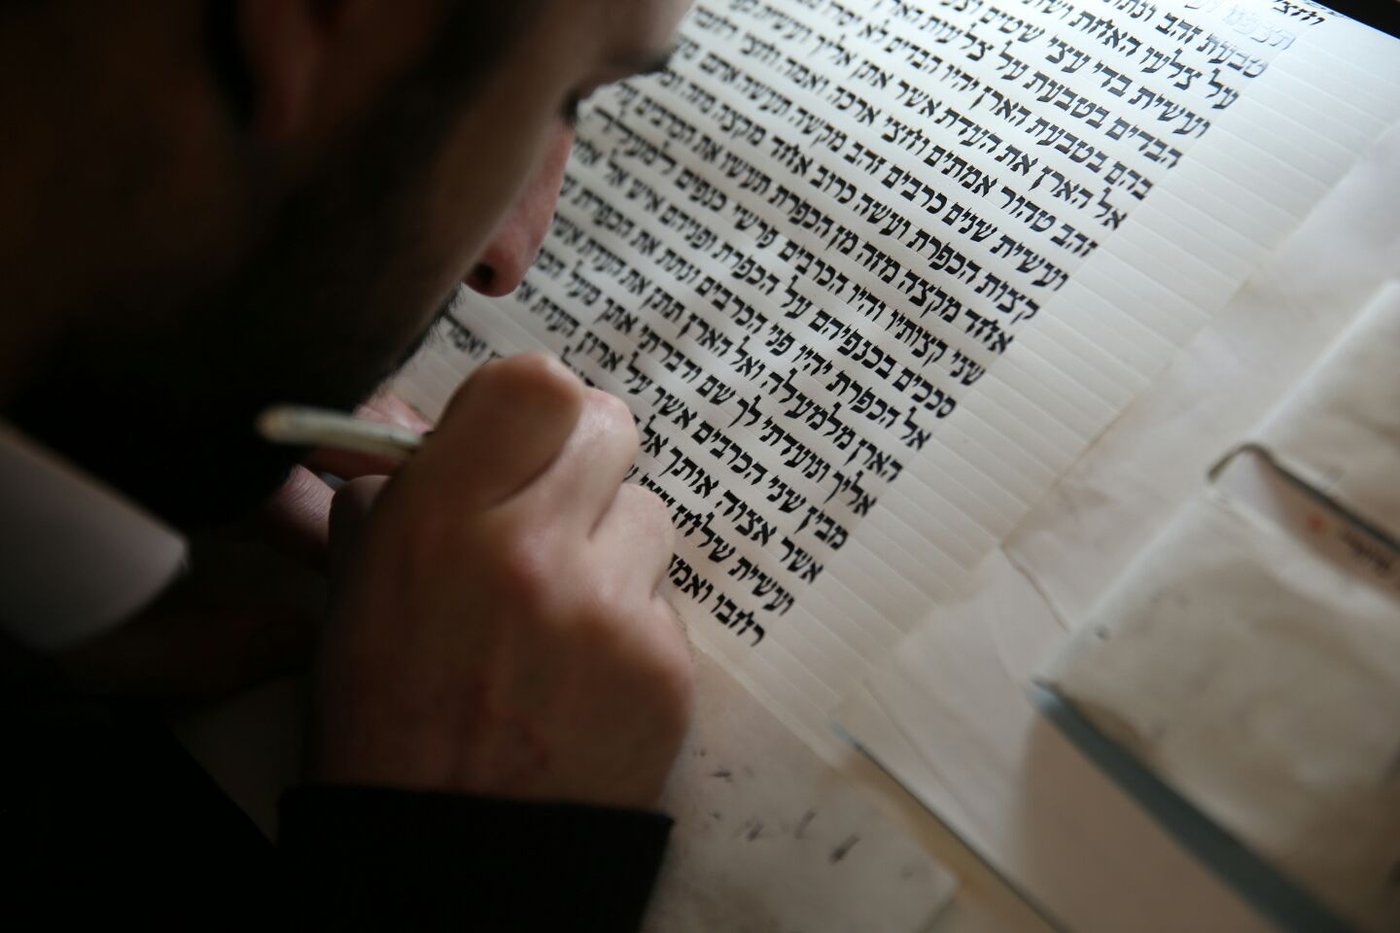 וחצי
טבעת זהב
על צלעו האחת
ועשית בדי עצי שטים
הבדים בטבעת על צלעת
בהם בטבעת הארן יהיו הבדים לא יסרו
אל הארן את העדת אשר אתן אליך ועשית
זהב טהור אמתים וחצי ארכה ואמה וחצי רחבה
ועשית שנים כרבים זהב מקשה תעשה אתם
קצות הכפרת ועשה כרוב אחד מקצה מזה
אחד מקצה מזה מן הכפרת תעשו את הכרבים
שני קצותיו והיו הכרבים פרשי כנפים למעלה
סככים בכנפיהם על הכפרת ופניהם איש אל
אל הכפרת יהיו פני הכרבים ונתת את הכפרת
הארן מלמעלה ואל הארן תתן את העדת
אליך ונועדתי לך שם ודברתי אתך מעל
מבין שני הכרבים אשר על ארון העדת
אשר אצוה אותך
ועשית שלחן
רחבו